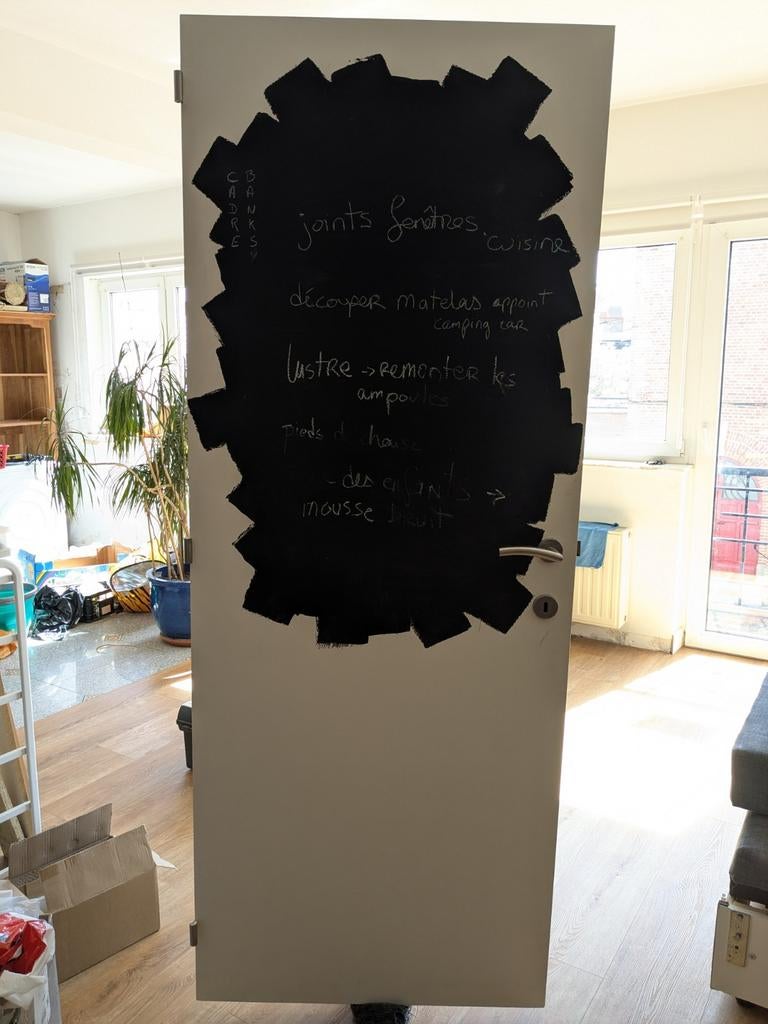 CADRE
BANKSY
joints fenêtres.
cuisine
découper matelas appoint
camping car
lustre → remonter les
ampoules
pieds de chaise
- des enfants →
mousse bruit